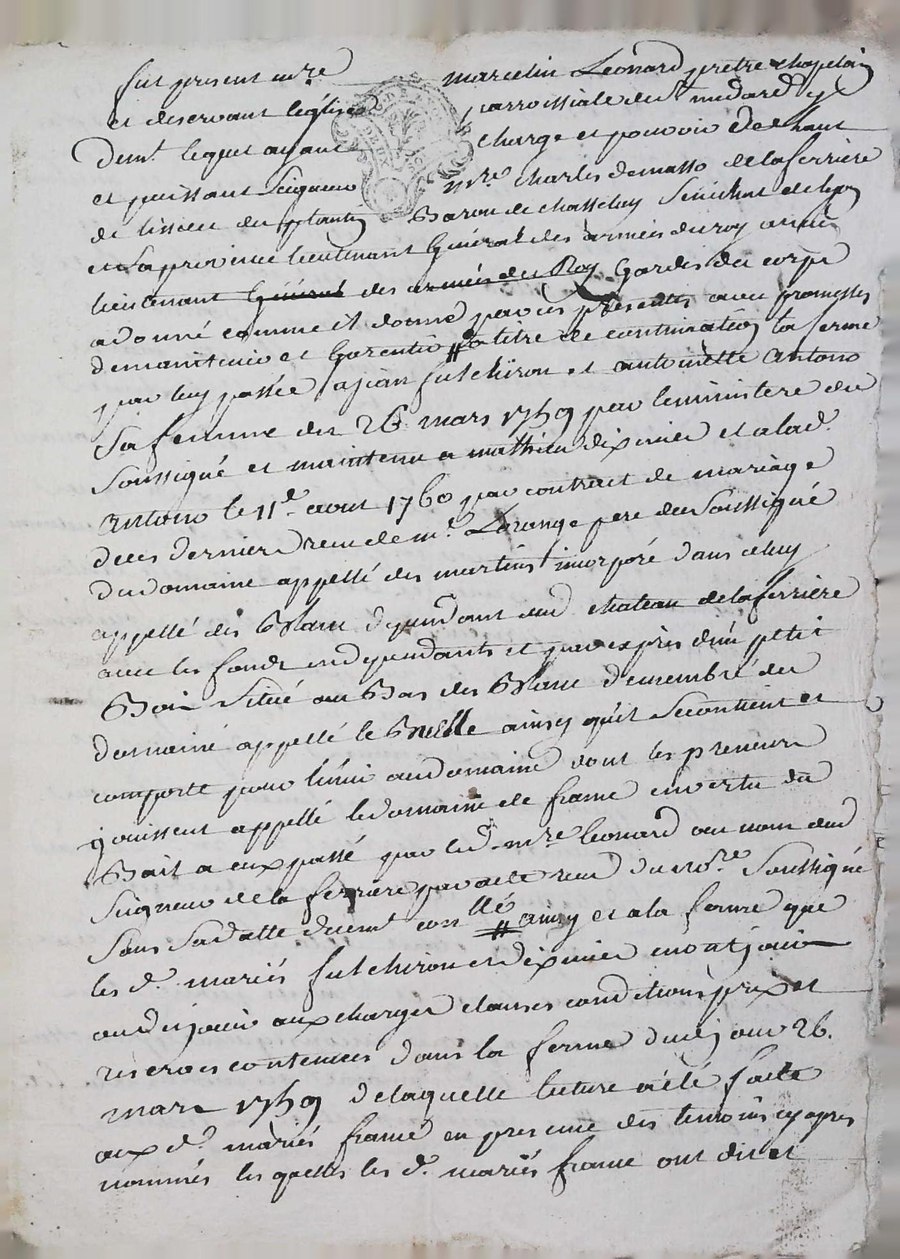 fut present mre marcelin Leonard pretre chapelain
et deservant leglise parroissiale de st medard y
demt. lequel ayant charge et pouvoir de haut
et puissant Seigneur mre. charles demasso de laferriere
de lissieu du plantin Baron de chasseluy Senechal de lyon
et sa province lieutenant General des armées du roy ancien
lieutenant General des armées du Roy Gardes du corps
a donné comme il donne par ces presentes avec promesses
de maintenir et Garentir # a titre de continuation la ferme
par luy passée a jean futchiron et antoinette antono
Sa femme du 26 mars 1759 par le ministere du
Soussigné et maintenu a mathieu dixmier et a lad.
antono le 11e. aout 1760 par contrat de mariage
de ces derniers recu de me. Lorange pere du Soussigné
du domaine appellé des martins incorporé dans celuy
appellé des Blanc dependant dud chateau de laferriere
avec les fonds en dependants et par exprès d'un petit
Bois Situé au Bas des Blanc demembré du
domaine appellé le Brelle ainsy qu'il Se contient et
comporte pour l'unir au domaine dont les preneurs
jouissent appellé le domaine de frame en vertu du
Bail a eux passé par led. mre leonard au nom dud
Seigneur de la ferriere par acte recu du nore. Soussigné
Sous Sa datte duemt con.llé # ainsy et a la forme que
les d. mariés futchiron et dixmier en ont joui
ou du jouir aux charges clauses conditions prix et
reserves contenues dans la ferme dud jour 26.
mars 1759 de laquelle lecture a été faite
aux d. mariés frame en presence des temoins cy apres
nommés lesquels les d. mariés frame ont dit et